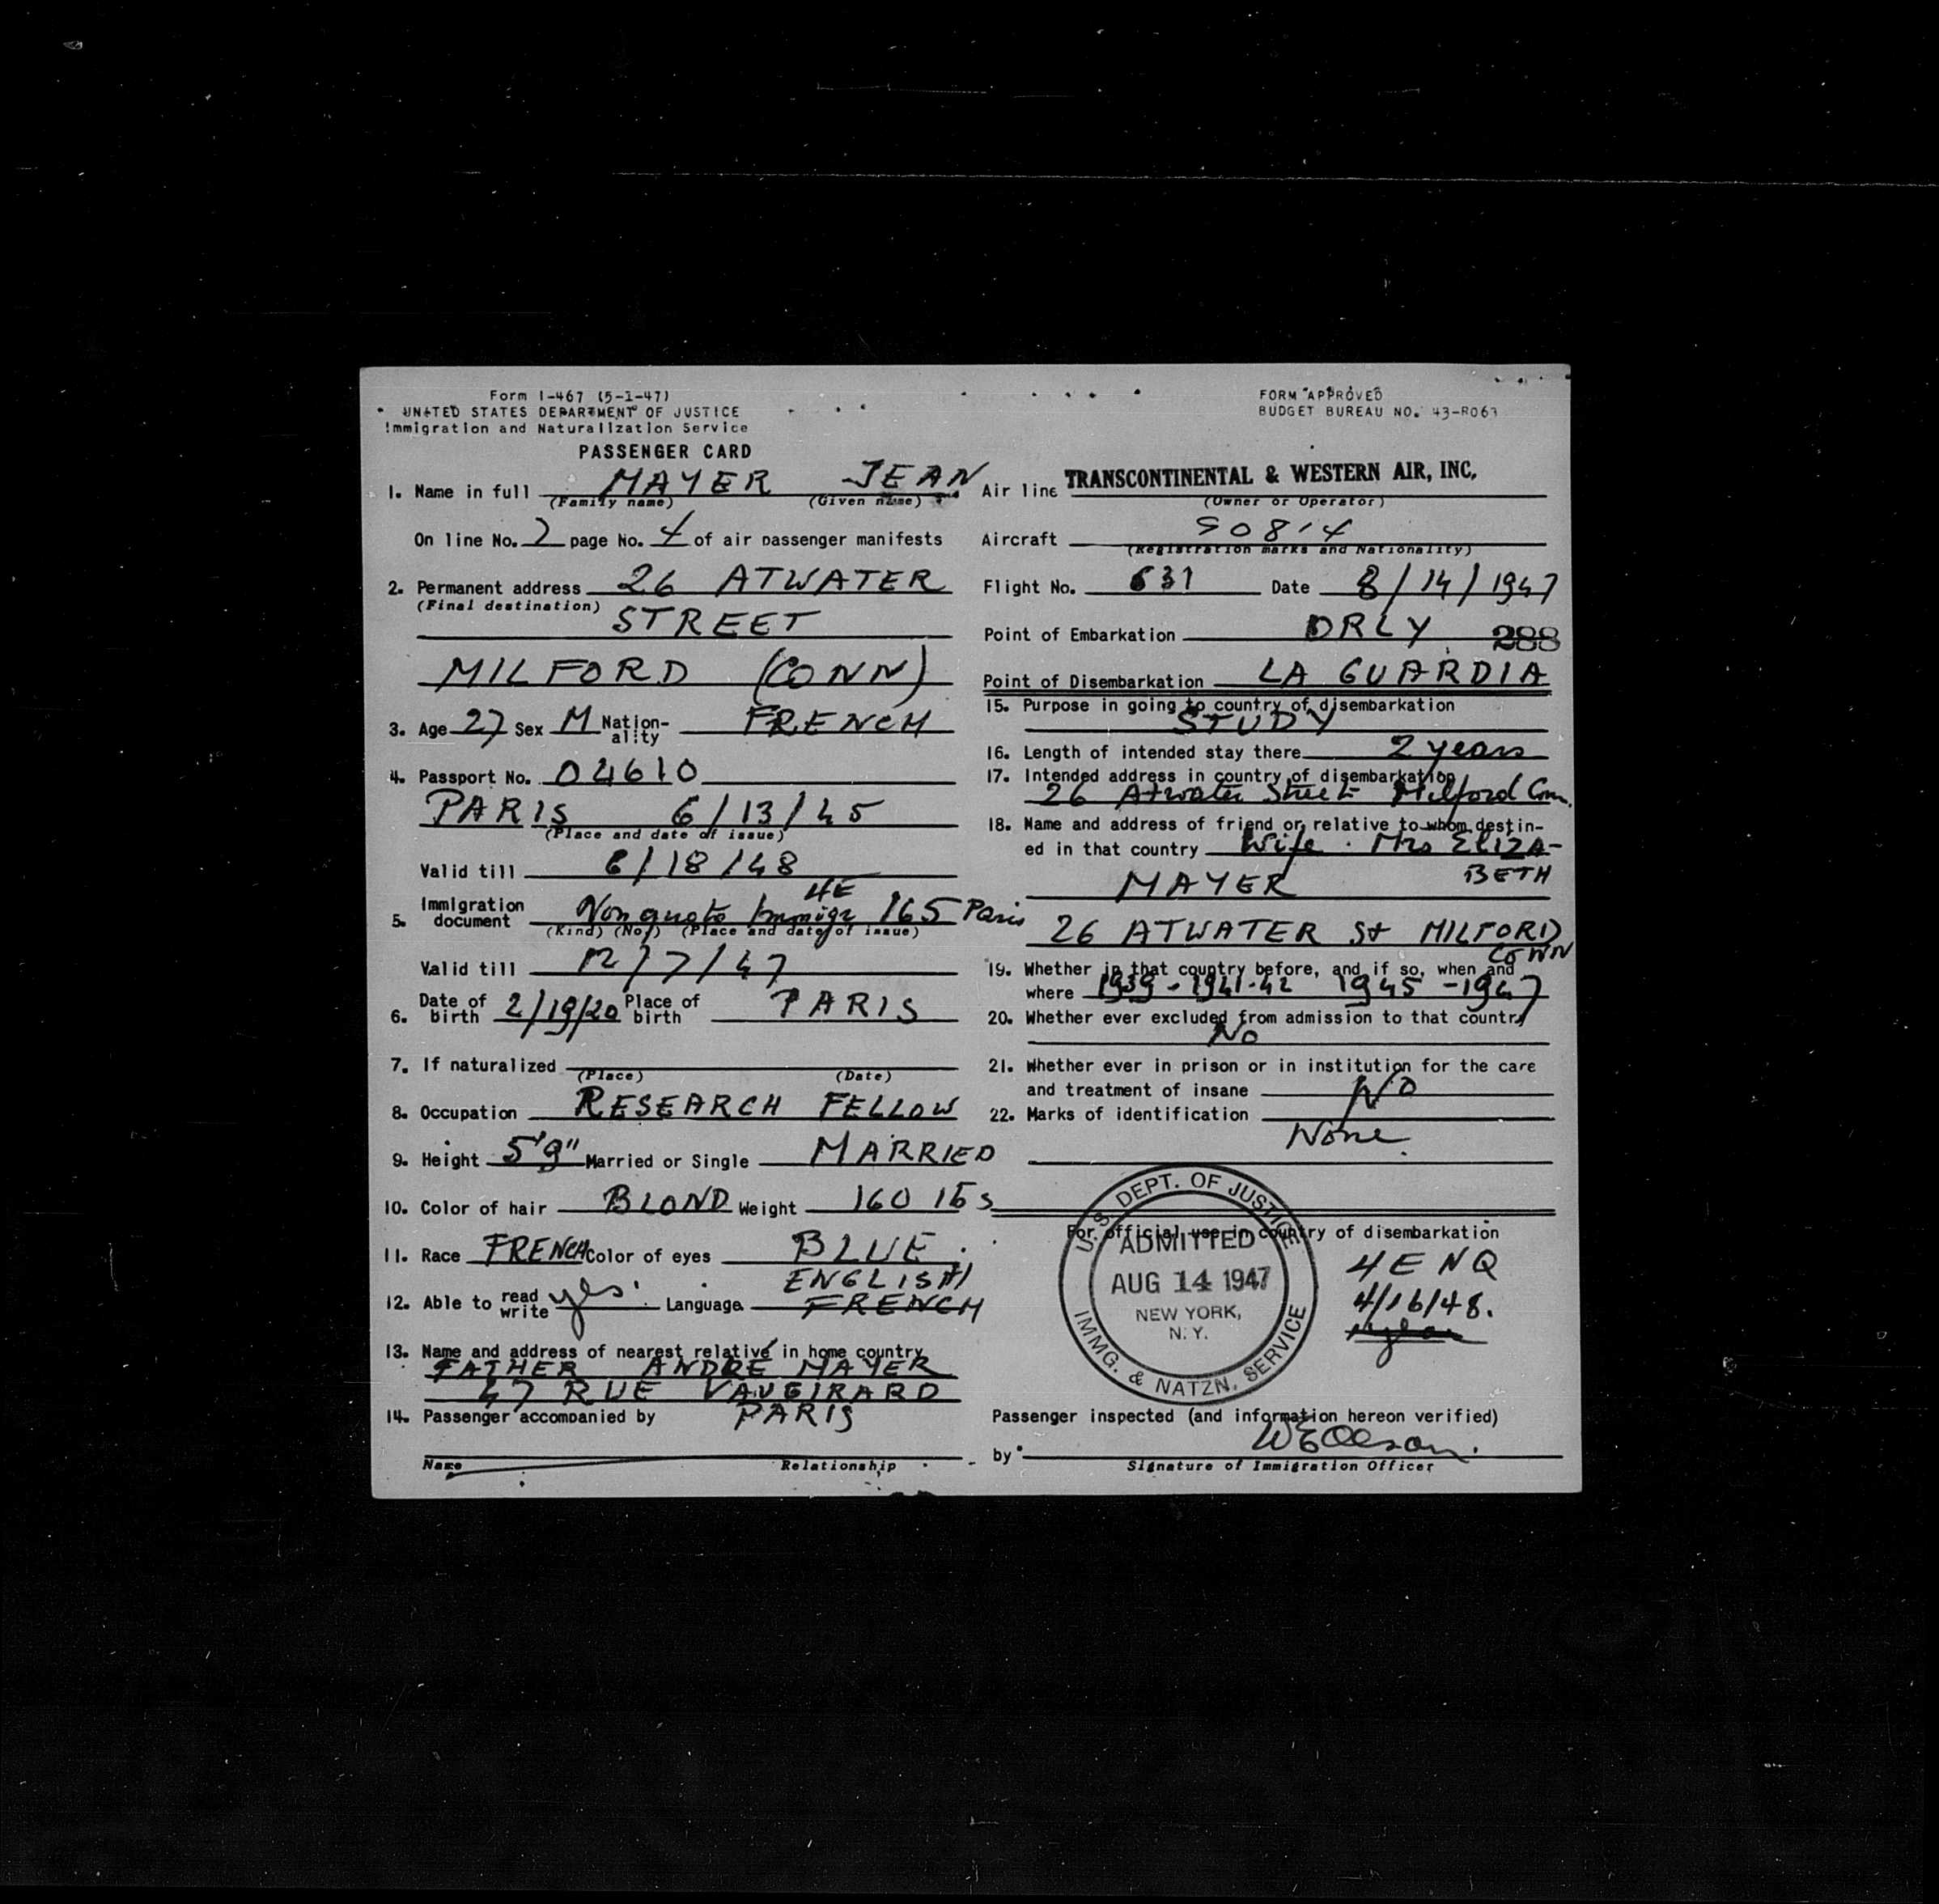 Form I-467 (5-1-47)
UNITED STATES DEPARTMENT OF JUSTICE
Immigration and Naturalization Service
PASSENGER CARD
FORM APPROVED
BUDGET BUREAU NO. 43-R063
1. Name in full MAYER JEAN
(Family name) (Given name)
On line No. 2 page No. 4 of air passenger manifests
2. Permanent address 26 ATWATER
(Final destination) STREET
MILFORD (CONN)
3. Age 27 Sex M Nation-ality FRENCH
4. Passport No. 04610
PARIS 6/13/45
(Place and date of issue)
Valid till 6/18/48
4E
5. Immigration document Nonquota Immigr 165 Paris
(Kind) (No.) (Place and date of issue)
Valid till 12/7/47
6. Date of birth 2/19/20 Place of birth PARIS
7. If naturalized
(Place) (Date)
8. Occupation RESEARCH FELLOW
9. Height 5'9" Married or Single MARRIED
10. Color of hair BLOND Weight 160 lbs
11. Race FRENCH Color of eyes BLUE
ENGLISH
12. Able to read write yes. Language FRENCH
13. Name and address of nearest relative in home country
FATHER ANDRE MAYER
47 RUE VAUGIRARD
14. Passenger accompanied by PARIS
Name Relationship
Air line TRANSCONTINENTAL & WESTERN AIR, INC,
(Owner or Operator)
Aircraft 90814
(Registration marks and Nationality)
Flight No. 631 Date 8/14/1947
Point of Embarkation ORLY 288
Point of Disembarkation LA GUARDIA
15. Purpose in going to country of disembarkation
STUDY
16. Length of intended stay there 2 years
17. Intended address in country of disembarkation
26 Atwater Street Milford Conn.
18. Name and address of friend or relative to whom destin-
ed in that country Wife. Mrs ELIZA-
MAYER BETH
26 ATWATER St MILFORD
CONN
19. Whether in that country before, and if so, when and
where 1939-1941-42 1945-1947
20. Whether ever excluded from admission to that country
No
21. Whether ever in prison or in institution for the care
and treatment of insane NO
22. Marks of identification
None.
For official use in country of disembarkation
U.S. DEPT. OF JUSTICE
ADMITTED
AUG 14 1947
NEW YORK,
N.Y.
IMMG. & NATZN. SERVICE
4E NQ
4/16/48.
Passenger inspected (and information hereon verified)
by W E Olson.
Signature of Immigration Officer